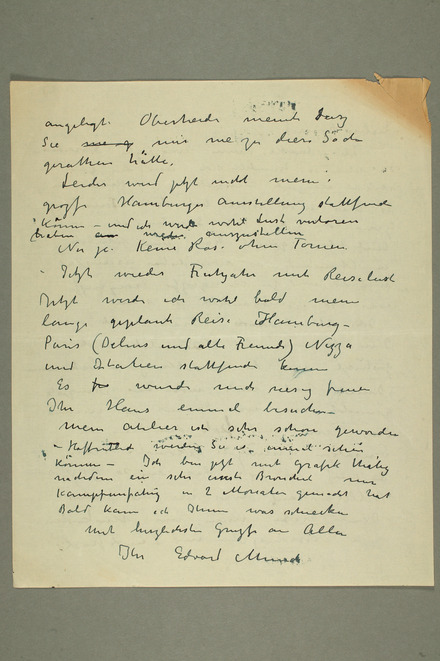 angelegt. Oberheide meint dass
Sie mir nie zu dieser
gerathen hätte.
Leider wird jetzt nicht meine
grosse Hamburger Ausstellung stattfinden
können – und ich wohl Lust verloren
auszustellen
Na ja. Keine Rose ohne Tornen.
– Jetzt wieder Frühjahr mit Reiselust
Jetzt werde ich wohl bald meine
lange geplante Reise Hamburg–
Paris (Delius und alte Freunde) Nizza
und Italien stattfinden
Es wurde mich riesig freuen
Ihr Haus einmal besuchen –
mein Atelier ist sehr schön geworden
– Hoffentlich werden Sie es einmal sehen
können – Ich bin jetzt mit Grafik thätig
nachdem ein sehr Bronchit mir
kampfunfähig in 2 Monaten gemacht hat
Bald kann ich Ihnen was schicken
Mit herzlichsten Grusse an Alle
Ihr Edvard Munch